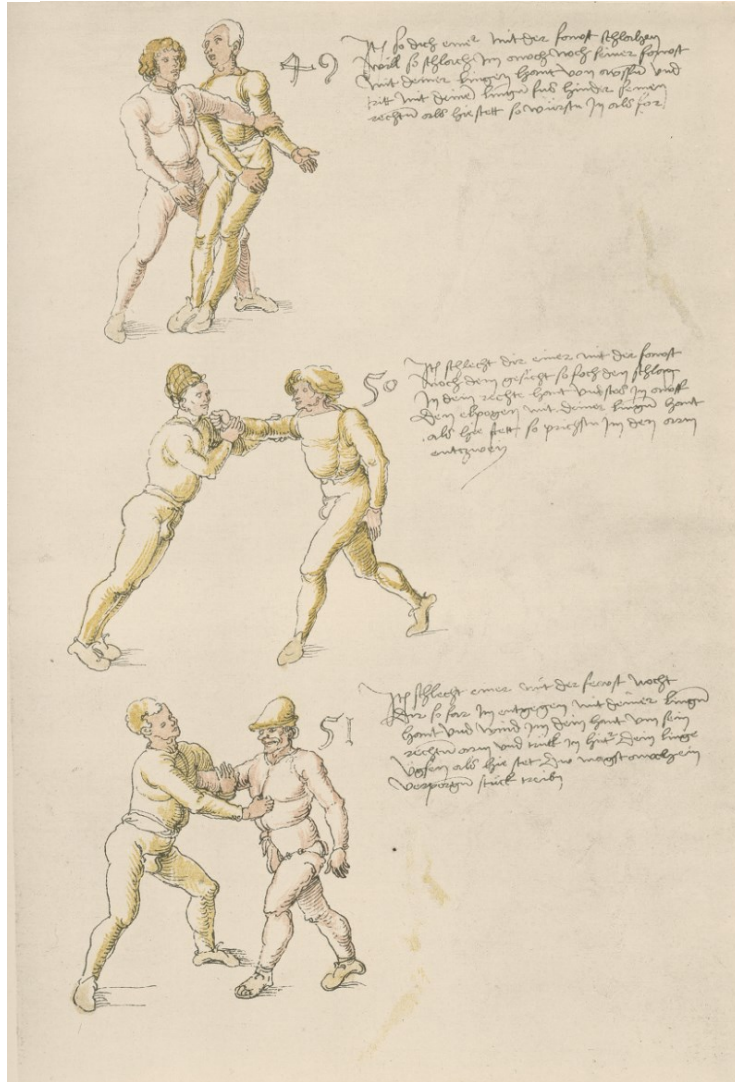 49
Itͫ so dich einer mit der fawst schlachen
will so schlach im auch noch seiner fawst
mit deiner lingen hant von aussen und
tritt mit deinem lingen fus hinder seinen
rechten als hie stett so würfstu in als for
50
Itͫ schlecht dir einer mit der fawst
noch dem gesicht so fach den schlag
in dein rechte hant und stos in auff
den elpogen mit deiner lingen hant
als hie stett so prichstu im den arm
entzwey
51
Itͫ schlecht einer mit der fawst nocht
dir so far im entgegen mit deiner lingen
hant und wind im dein hant um sein
rechten arm und truck in hinter dein linge
als hie stet Du magst auch ein
verporgen stück treibn